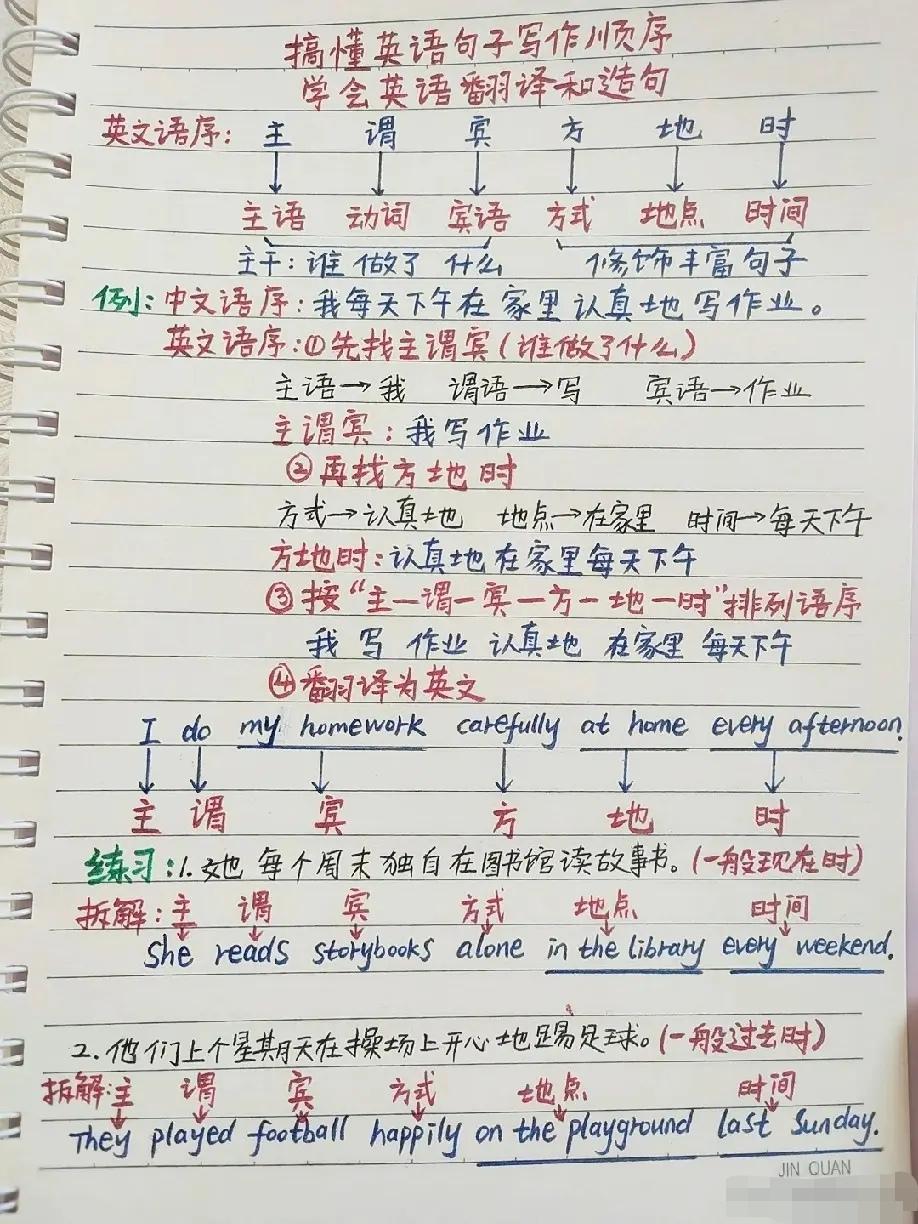 搞懂英语句子写作顺序
学会英语翻译和造句
英文语序: 主 谓 宾 方 地 时
主语 动词 宾语 方式 地点 时间
主干: 谁 做了 什么 修饰丰富句子
例: 中文语序: 我每天下午在家里认真地写作业。
英文语序: ①先找主谓宾(谁做了什么)
主语→我 谓语→写 宾语→作业
主谓宾: 我写作业
②再找方地时
方式→认真地 地点→在家里 时间→每天下午
方地时: 认真地在家里每天下午
③按“主一谓一宾一方一地一时”排列语序
我 写 作业 认真地 在家里 每天下午
④翻译为英文
I do my homework carefully at home every afternoon.
主 谓 宾 方 地 时
练习: 1. 她每个周末独自在图书馆读故事书。(一般现在时)
拆解: 主 谓 宾 方式 地点 时间
She reads storybooks alone in the library every weekend.
2. 他们上个星期天在操场上开心地踢足球。(一般过去时)
拆解: 主 谓 宾 方式 地点 时间
They played football happily on the playground last Sunday.
JIN QUAN